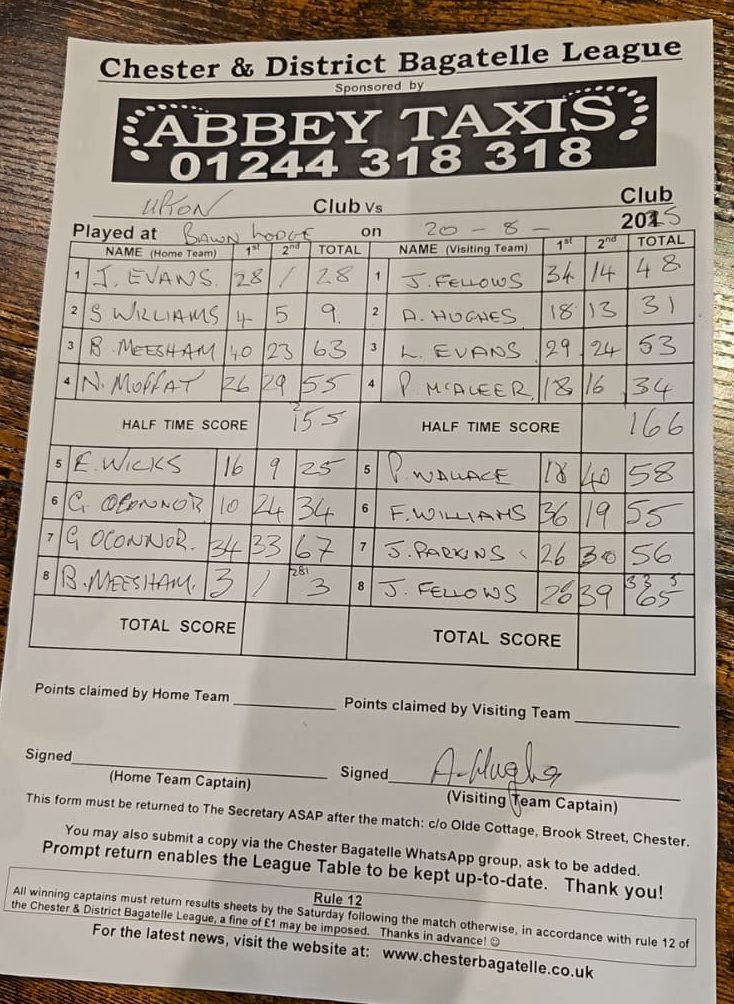 Chester & District Bagatelle League
Sponsored by
ABBEY TAXIS
01244 318 318
UPTON Club Vs Club
Played at BAWN LODGE on 20 - 8 - 2025
NAME (Home Team) 1st 2nd TOTAL NAME (Visiting Team) 1st 2nd TOTAL
1 J. EVANS. 28 / 28 1 J. FELLOWS 34 14 48
2 S WILLIAMS 4 5 9. 2 A. HUGHES 18 13 31
3 B. MEESHAM 40 23 63 3 L. EVANS 29 24 53
4 N. MOFFAT 26 29 55 4 P. McALEER 18 16 34
HALF TIME SCORE 155 HALF TIME SCORE 166
5 E. WICKS 16 9 25 5 P. WALLACE 18 40 58
6 G. OCONNOR 10 24 34 6 F. WILLIAMS 36 19 55
7 G OCONNOR. 34 33 67 7 J. PARKINS 26 30 56
8 B. MEESHAM. 3 / 281 3 8 J. FELLOWS 26 39 65
TOTAL SCORE TOTAL SCORE
Points claimed by Home Team Points claimed by Visiting Team
Signed Signed A. Hughes
(Home Team Captain) (Visiting Team Captain)
This form must be returned to The Secretary ASAP after the match: c/o Olde Cottage, Brook Street, Chester.
You may also submit a copy via the Chester Bagatelle WhatsApp group, ask to be added.
Prompt return enables the League Table to be kept up-to-date. Thank you!
Rule 12
All winning captains must return results sheets by the Saturday following the match otherwise, in accordance with rule 12 of
the Chester & District Bagatelle League, a fine of £1 may be imposed. Thanks in advance! ☺
For the latest news, visit the website at: www.chesterbagatelle.co.uk